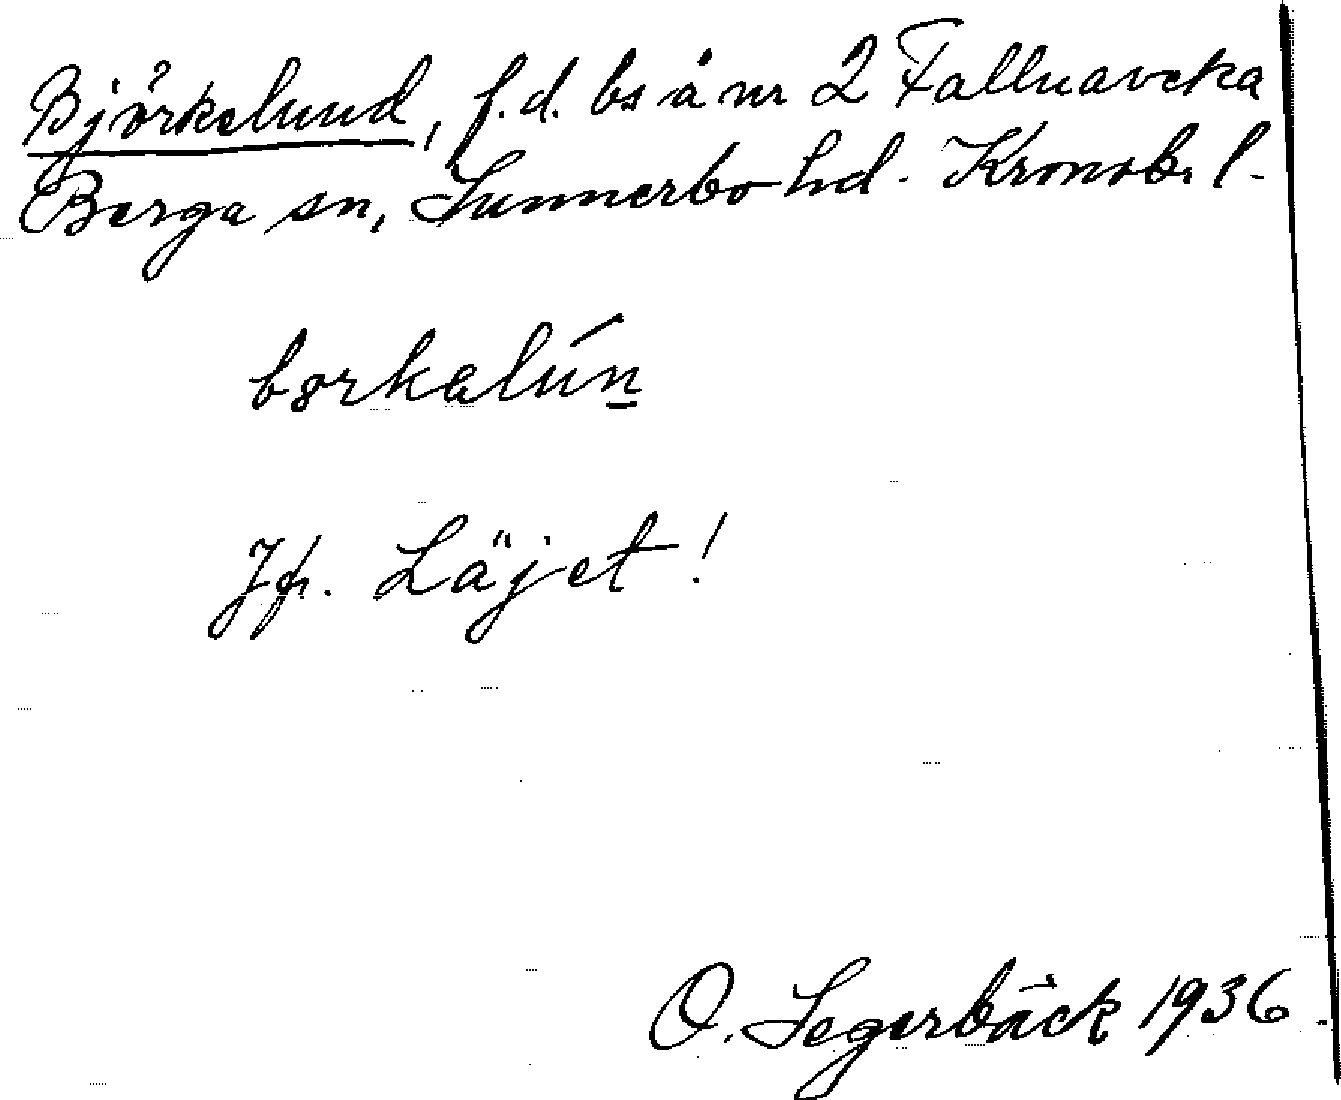 Björkelund, f.d. bs å nr 2 Fallnaveka
Berga sn, Sunnerbo hd. Kronob. l.
børkalún
Jfr. Läjet!
O. Segerbäck 1936.